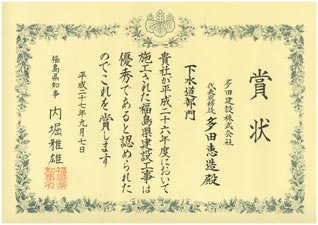 賞状
多田建設株式会社
代表取締役 多田惠造殿
下水道部門
貴社が平成二十六年度において
施工された福島県建設工事は
優秀であると認められた
のでこれを賞します
平成二十七年九月七日
福島県知事 内堀雅雄